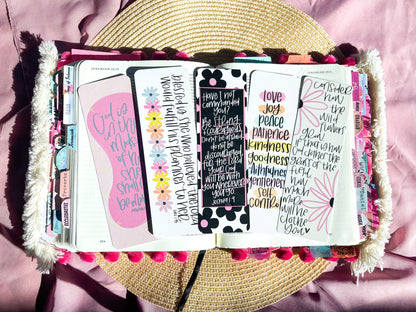 God is
in the
midst
of her
she
Blessed is she who believed the Lord
would fulfill His promises to her
Have I not
commanded
you?
Be Strong
& courageous
Do not be afraid
do not be
discouraged
for the LORD
your God
will be with
you wherever
you go.
Joshua 1:9
love
joy
peace
patience
kindness
goodness
faithfulness
gentleness
self
control
consider
how the
wild
flowers
grow
if that is how
God clothes the
grass of the
field
how
much
more
will He
clothe
you